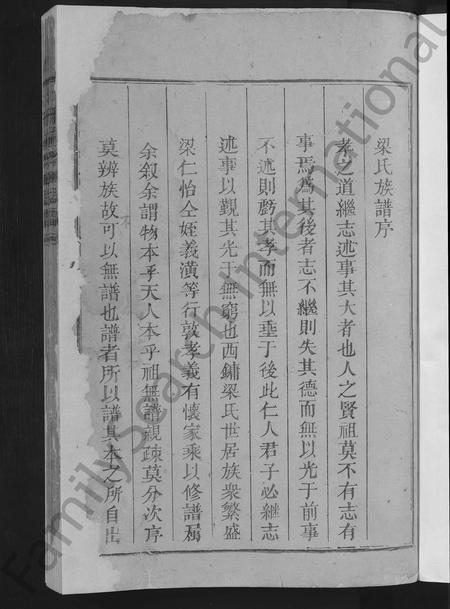 梁氏族譜序
孝之道繼志述事其大者也人之賢祖莫不有志有
事焉為其後者志不繼則失其德而無以光于前事
不述則虧其孝而無以垂于後此仁人君子必繼志
述事以觀其光于無窮也西鏞梁氏世居族衆繁盛
梁仁怡仝姪義潢等行敦孝義有懷家乘以修譜屬
余叙余謂物本乎天人本乎祖無譜親疎莫分次序
莫辨族故可以無譜也譜者所以譜其本之所自出
FamilySearch International